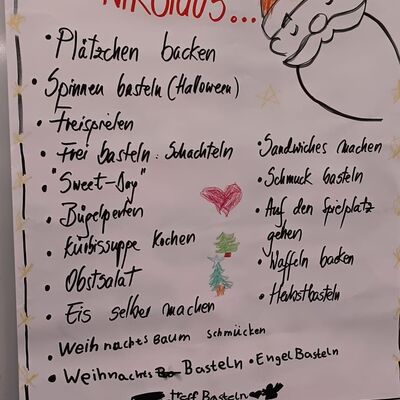 Nikolaus...
• Plätzchen backen
• Spinnen basteln (Halloween)
• Freispielen
• Frei basteln: Schachteln
• "Sweet-Day"
• Bügelperlen
• Kürbissuppe kochen
• Obstsalat
• Eis selber machen
• Sandwiches machen
• Schmuck basteln
• Auf den Spielplatz
gehen
• Waffeln backen
• Herbstbasteln
• Weihnachtsbaum schmücken
• Weihnachts Basteln • Engel Basteln
Basteln